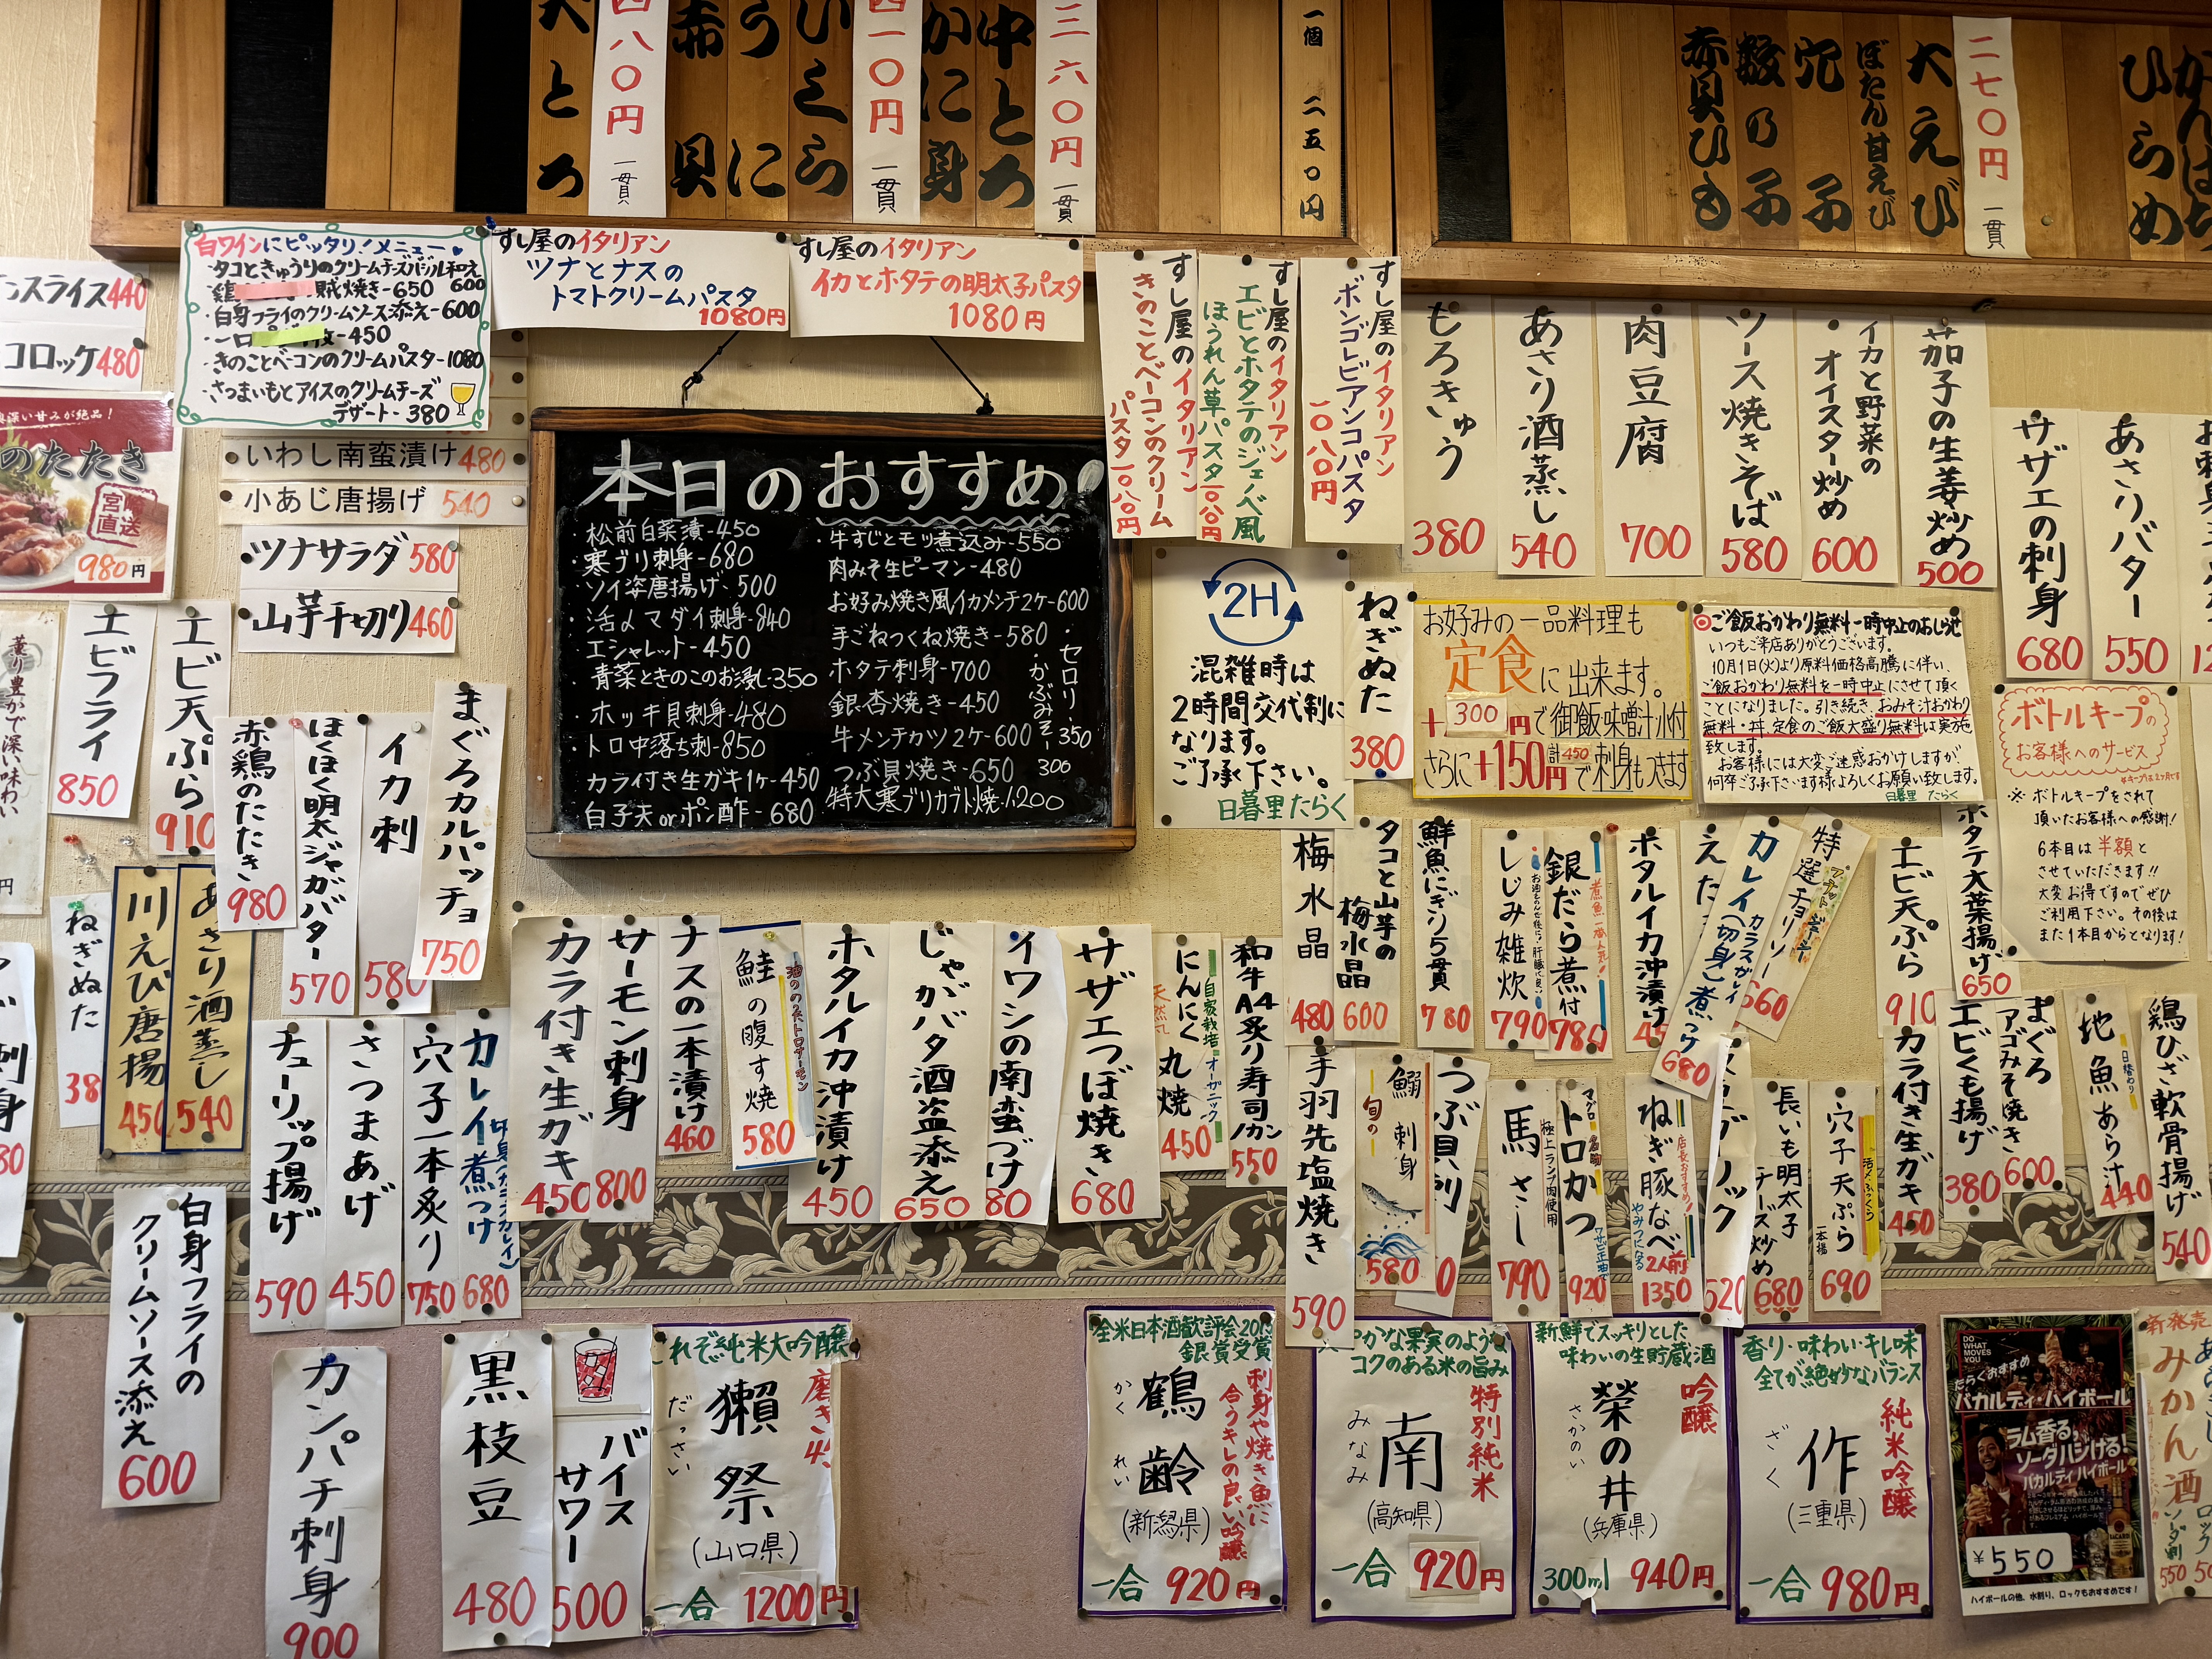 大とろ
四八〇円 一貫
赤貝
うに
ひらめ
四一〇円 一貫
かに身
中とろ
三六〇円 一貫
一個 二五〇円
赤貝ひも
数の子
穴子
ぼたん甘えび
大えび
二七〇円 一貫
ひらめ
スライス440
コロッケ480
深い甘みが絶品！
のたたき
宮崎直送
980円
白ワインにピッタリ！メニュー
・タコときゅうりのクリームチーズバジル和え 600
賊焼き-650
・白身フライのクリームソース添え-600
-450
・きのことベーコンのクリームパスタ-1080
・さつまいもとアイスのクリームチーズ
デザート-380
すし屋のイタリアン
ツナとナスの
トマトクリームパスタ
1080円
すし屋のイタリアン
イカとホタテの明太子パスタ
1080円
すし屋のイタリアン
きのことベーコンのクリーム
パスタ一〇八〇円
すし屋のイタリアン
エビとホタテのジェノベ風
ほうれん草パスタ一〇八〇円
すし屋のイタリアン
ボンゴレビアンコパスタ
一〇八〇円
もろきゅう
380
あさり酒蒸し
540
肉豆腐
700
ソース焼きそば
580
イカと野菜の
オイスター炒め
600
茄子の生姜炒め
500
サザエの刺身
680
あさりバター
550
いわし南蛮漬け480
小あじ唐揚げ 540
ツナサラダ580
山芋千切り460
本日のおすすめ！
・松前白菜漬-450
・寒ブリ刺身-680
・ソイ姿唐揚げ-500
・活〆マダイ刺身-840
・エシャレット-450
青菜ときのこのお浸し-350
・ホッキ貝刺身-480
・トロ中落ち刺-850
カラ付き生ガキ1ヶ-450
白子天orポン酢-680
・牛すじとモツ煮込み-550
肉みそ生ピーマン-480
お好み焼き風イカメンチ2ヶ-600
手ごねつくね焼き-580
ホタテ刺身-700
銀杏焼き-450
牛メンチカツ2ヶ-600
つぶ貝焼き-650
特大寒ブリカブト焼-1,200
・セロリ-350
・かぶみそ-300
2H
混雑時は
2時間交代制に
なります。
ご了承下さい。
日暮里たらく
ねぎぬた
380
お好みの一品料理も
定食に出来ます。
+300円で御飯味噌汁付
さらに+150円 計450で刺身もつきます
◎ご飯おかわり無料一時中止のおしらせ
いつもご来店ありがとうございます。
10月1日(火)より原料価格高騰に伴い、
ご飯おかわり無料を一時中止にさせて頂く
ことになりました。引き続き、おみそ汁おかわり
無料・丼、定食のご飯大盛り無料は実施
致します。
お客様には大変ご迷惑おかけしますが、
何卒ご了承下さいます様よろしくお願い致します。
日暮里 たらく
ボトルキープの
お客様へのサービス
※キープは2ヶ月です
※ボトルキープをされて
頂いたお客様への感謝！
6本目は半額と
させていただきます!!
大変お得ですのでぜひ
ご利用下さい。その後は
また1本目からとなります！
薫り豊かで深い味わい
エビフライ
850
エビ天ぷら
910
赤鶏のたたき
980
ほくほく明太ジャガバター
570
イカ刺
580
まぐろカルパッチョ
750
ねぎぬた
38
川えび唐揚
450
あさり酒蒸し
540
チューリップ揚げ
590
さつまあげ
450
穴子一本炙り
750
カレイ煮つけ
680
カラ付き生ガキ
450
サーモン刺身
800
ナスの一本漬け
460
鮭の腹す焼
580
ホタルイカ沖漬け
450
じゃがバタ酒盗添え
650
イワシの南蛮づけ
80
サザエつぼ焼き
680
自家栽培 オーガニック
にんにく丸焼
天然丸
450
和牛A4炙り寿司ノカン
550
梅水晶
480
タコと山芋の
梅水晶
600
鮮魚にぎり5貫
780
しじみ雑炊
790
銀だら煮付
780
ホタルイカ沖漬け
45
えだ
カレイ(切身)煮つけ
カラスガレイ
680
特選チョリソー
560
エビ天ぷら
910
ホタテ大葉揚げ
650
手羽先塩焼き
590
旬の
鰯刺身
580
つぶ貝刺
0
馬さし
極上ランプ肉使用
790
マグロ
トロかつ
920
ねぎ豚なべ
店長おすすめ！
やみつきになる
2人前
1350
520
長いも明太子
チーズ炒め
680
穴子天ぷら
一本揚
690
カラ付き生ガキ
450
エビくも揚げ
380
まぐろ
アゴみそ焼き
600
日替わり
地魚あら汁
440
鶏ひざ軟骨揚げ
540
白身フライの
クリームソース添え
600
カンパチ刺身
900
黒枝豆
480
バイス
サワー
500
これぞ純米大吟醸
磨き45
獺祭
だっさい
(山口県)
一合 1200円
全米日本酒歓評会2015
銀賞受賞
刺身や焼き魚に
合うキレの良い吟醸
鶴齢
かくれい
(新潟県)
一合 920円
やかな果実のような
コクのある米の旨み
特別純米
南
みなみ
(高知県)
一合 920円
新鮮でスッキリとした
味わいの生貯蔵酒
吟醸
榮の井
さかのい
(兵庫県)
300ml 940円
香り・味わい・キレ味
全てが絶妙なバランス
純米吟醸
作
ざく
(三重県)
一合 980円
DO WHAT MOVES YOU
たらくおすすめ
バカルディ ハイボール
ラム香る、
ソーダハジける！
バカルディ ハイボール
¥550
ハイボールの他、水割り、ロックもおすすめです！
新発売
みかん酒
ロック
ソーダ割
550